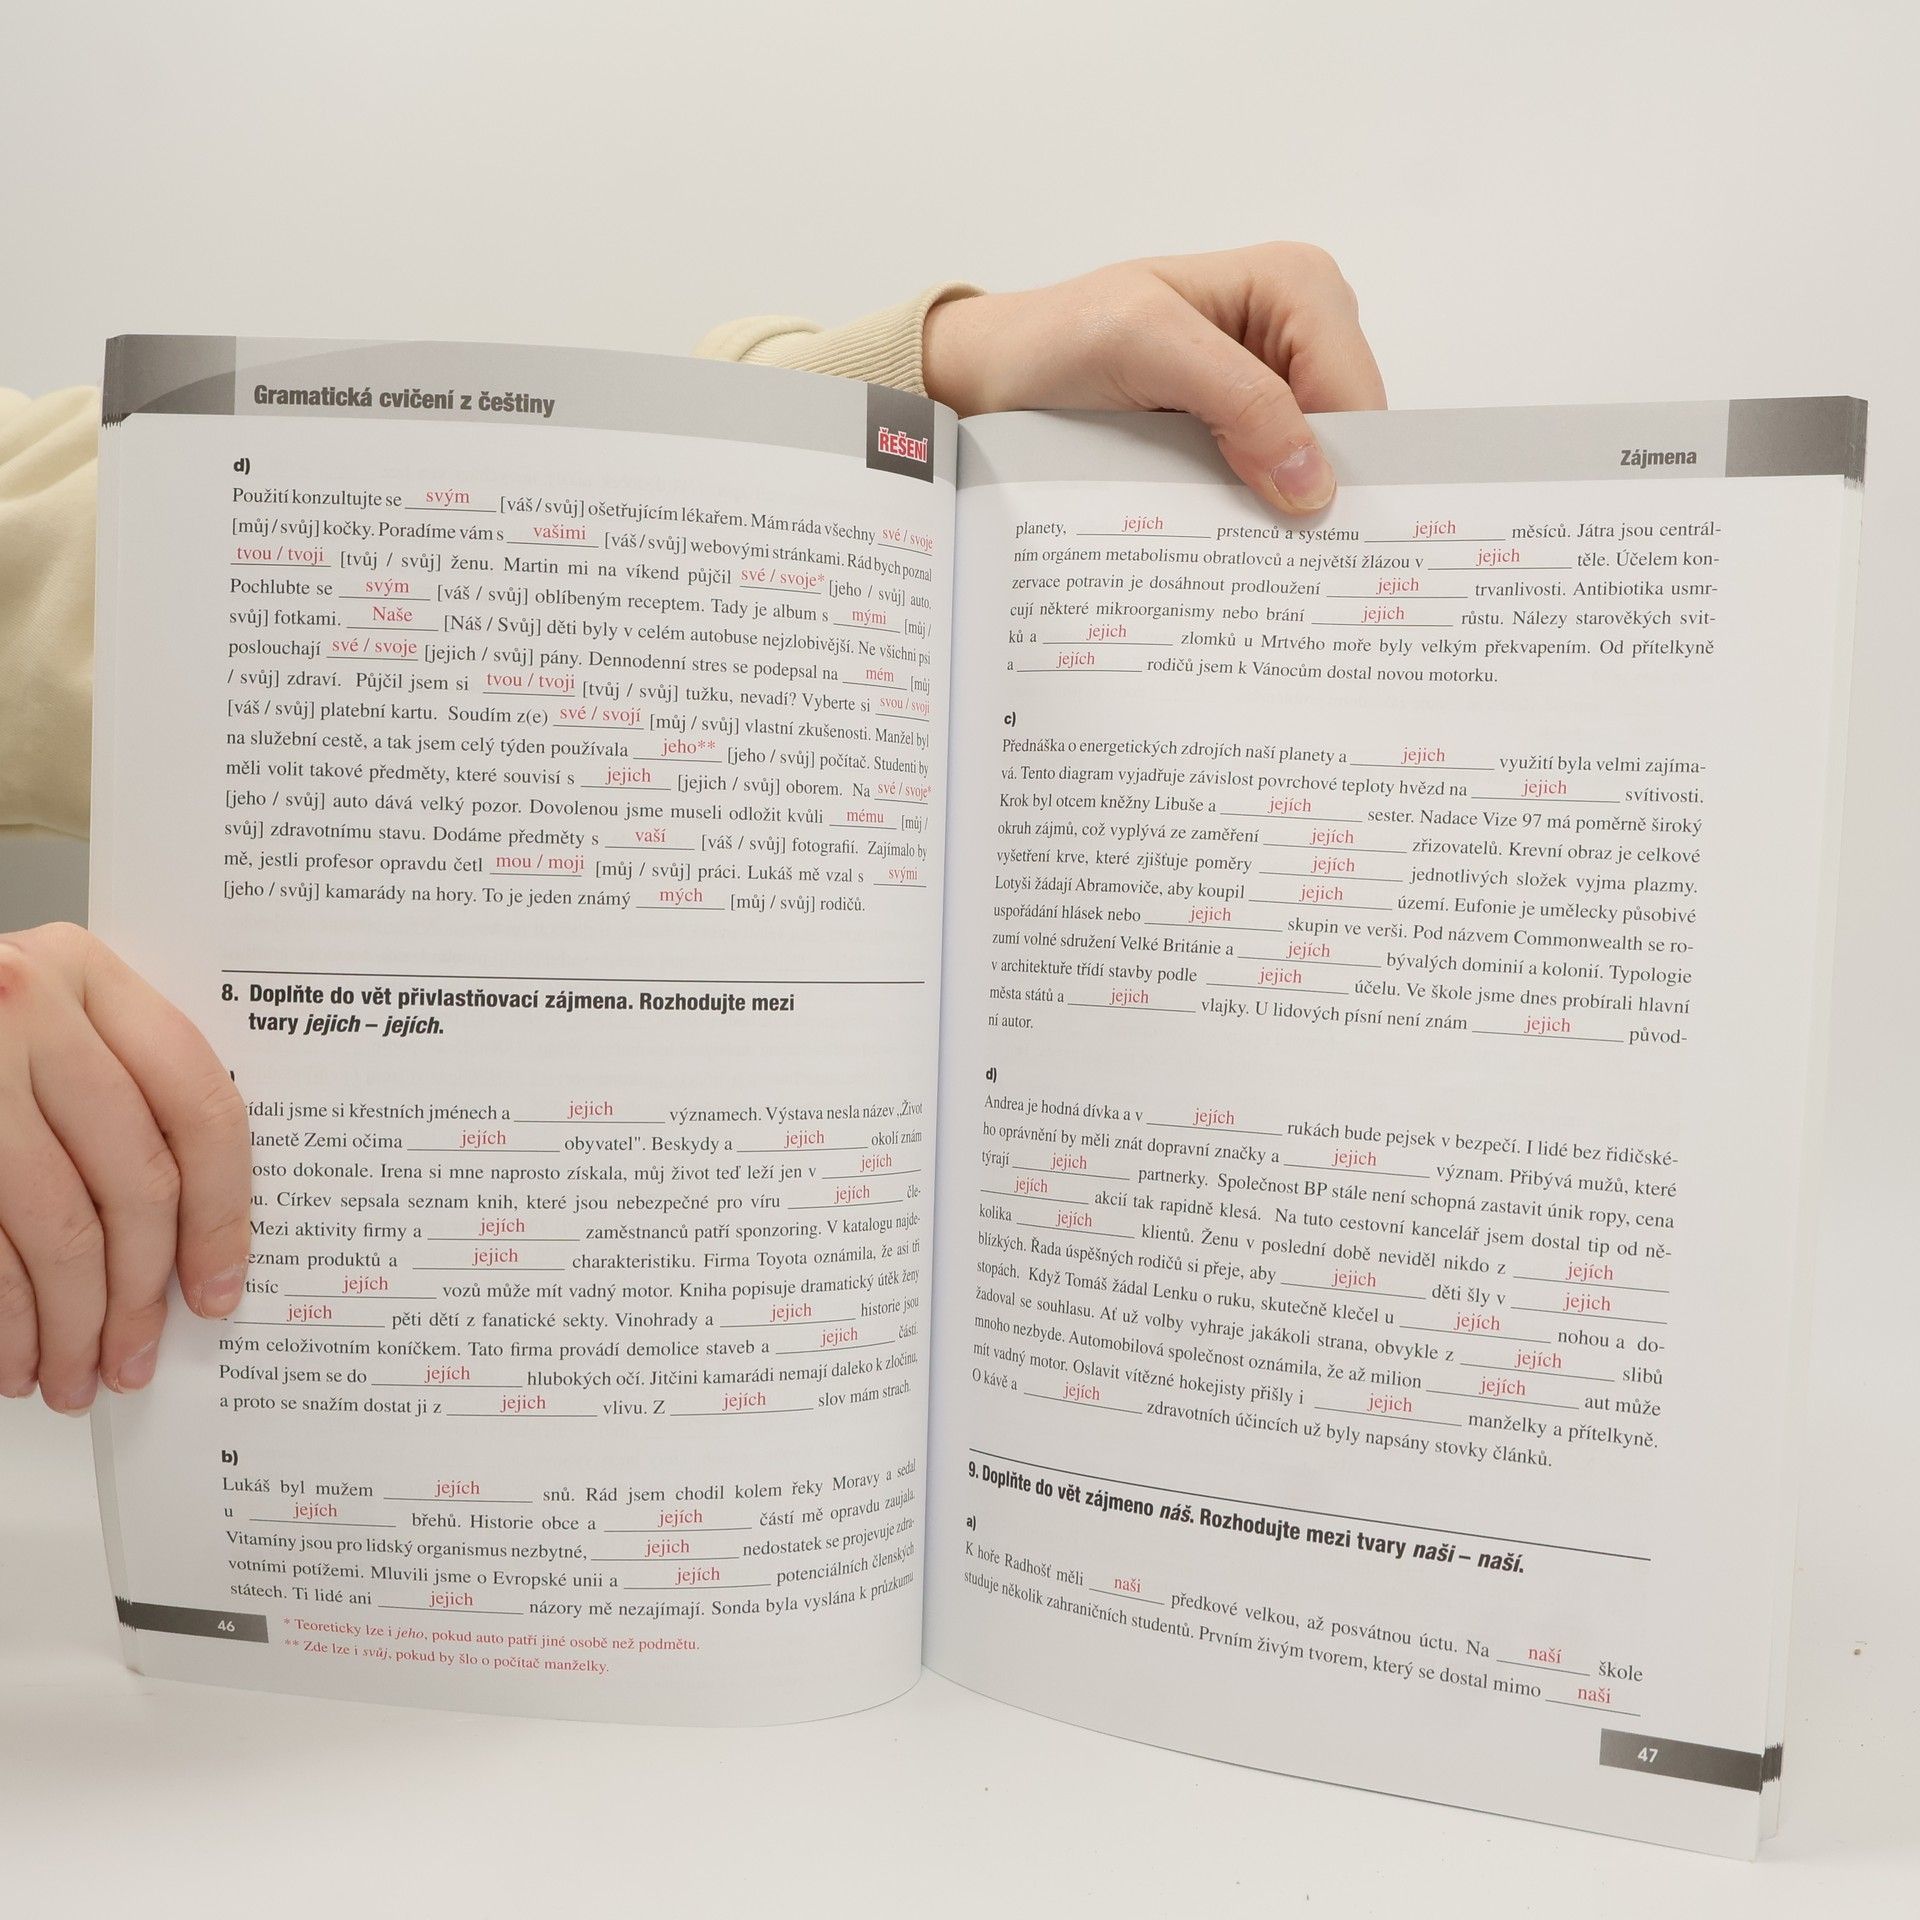 Gramatická cvičení z češtiny
ŘEŠENÍ
d)
Použití konzultujte se svým [váš / svůj] ošetřujícím lékařem. Mám ráda všechny své / svoje
[můj / svůj] kočky. Poradíme vám s vašimi [váš / svůj] webovými stránkami. Rád bych poznal
tvou / tvoji [tvůj / svůj] ženu. Martin mi na víkend půjčil své / svoje* [jeho / svůj] auto.
Pochlubte se svým [váš / svůj] oblíbeným receptem. Tady je album s mými [můj /
svůj] fotkami. Naše [Náš / Svůj] děti byly v celém autobuse nejzlobivější. Ne všichni psi
poslouchají své / svoje [jejich / svůj] pány. Dennodenní stres se podepsal na mém [můj
/ svůj] zdraví. Půjčil jsem si tvou / tvoji [tvůj / svůj] tužku, nevadí? Vyberte si svou / svoji
[váš / svůj] platební kartu. Soudím z(e) své / svojí [můj / svůj] vlastní zkušenosti. Manžel byl
na služební cestě, a tak jsem celý týden používala jeho** [jeho / svůj] počítač. Studenti by
měli volit takové předměty, které souvisí s jejich [jejich / svůj] oborem. Na své / svoje*
[jeho / svůj] auto dává velký pozor. Dovolenou jsme museli odložit kvůli mému [můj /
svůj] zdravotnímu stavu. Dodáme předměty s vaší [váš / svůj] fotografií. Zajímalo by
mě, jestli profesor opravdu četl mou / moji [můj / svůj] práci. Lukáš mě vzal s svými
[jeho / svůj] kamarády na hory. To je jeden známý mých [můj / svůj] rodičů.
8. Doplňte do vět přivlastňovací zájmena. Rozhodujte mezi
tvary jejich – jejích.
ídali jsme si křestních jménech a jejich významech. Výstava nesla název „Život
lanetě Zemi očima jejích obyvatel". Beskydy a jejich okolí znám
osto dokonale. Irena si mne naprosto získala, můj život teď leží jen v jejích
u. Církev sepsala seznam knih, které jsou nebezpečné pro víru jejích čle-
Mezi aktivity firmy a jejích zaměstnanců patří sponzoring. V katalogu najde-
eznam produktů a jejich charakteristiku. Firma Toyota oznámila, že asi tři
tisíc jejích vozů může mít vadný motor. Kniha popisuje dramatický útěk ženy
jejích pěti dětí z fanatické sekty. Vinohrady a jejich historie jsou
mým celoživotním koníčkem. Tato firma provádí demolice staveb a jejich částí.
Podíval jsem se do jejích hlubokých očí. Jitčini kamarádi nemají daleko k zločinu,
a proto se snažím dostat ji z jejich vlivu. Z jejích slov mám strach.
b)
Lukáš byl mužem jejích snů. Rád jsem chodil kolem řeky Moravy a sedal
u jejích břehů. Historie obce a jejích částí mě opravdu zaujala.
Vitamíny jsou pro lidský organismus nezbytné, jejich nedostatek se projevuje zdra-
votními potížemi. Mluvili jsme o Evropské unii a jejích potenciálních členských
státech. Ti lidé ani jejich názory mě nezajímají. Sonda byla vyslána k průzkumu
46
* Teoreticky lze i jeho, pokud auto patří jiné osobě než podmětu.
** Zde lze i svůj, pokud by šlo o počítač manželky.
Zájmena
planety, jejích prstenců a systému jejích měsíců. Játra jsou centrál-
ním orgánem metabolismu obratlovců a největší žlázou v jejich těle. Účelem kon-
zervace potravin je dosáhnout prodloužení jejich trvanlivosti. Antibiotika usmr-
cují některé mikroorganismy nebo brání jejich růstu. Nálezy starověkých svit-
ků a jejich zlomků u Mrtvého moře byly velkým překvapením. Od přítelkyně
a jejích rodičů jsem k Vánocům dostal novou motorku.
c)
Přednáška o energetických zdrojích naší planety a jejich využití byla velmi zajíma-
vá. Tento diagram vyjadřuje závislost povrchové teploty hvězd na jejich svítivosti.
Krok byl otcem kněžny Libuše a jejích sester. Nadace Vize 97 má poměrně široký
okruh zájmů, což vyplývá ze zaměření jejích zřizovatelů. Krevní obraz je celkové
vyšetření krve, které zjišťuje poměry jejích jednotlivých složek vyjma plazmy.
Lotyši žádají Abramoviče, aby koupil jejich území. Eufonie je umělecky působivé
uspořádání hlásek nebo jejich skupin ve verši. Pod názvem Commonwealth se ro-
zumí volné sdružení Velké Británie a jejích bývalých dominií a kolonií. Typologie
v architektuře třídí stavby podle jejich účelu. Ve škole jsme dnes probírali hlavní
města států a jejich vlajky. U lidových písní není znám jejich původ-
ní autor.
d)
Andrea je hodná dívka a v jejích rukách bude pejsek v bezpečí. I lidé bez řidičské-
ho oprávnění by měli znát dopravní značky a jejich význam. Přibývá mužů, které
týrají jejich partnerky. Společnost BP stále není schopná zastavit únik ropy, cena
jejích akcií tak rapidně klesá. Na tuto cestovní kancelář jsem dostal tip od ně-
kolika jejích klientů. Ženu v poslední době neviděl nikdo z jejích
blízkých. Řada úspěšných rodičů si přeje, aby jejich děti šly v jejich
stopách. Když Tomáš žádal Lenku o ruku, skutečně klečel u jejích nohou a do-
žadoval se souhlasu. Ať už volby vyhraje jakákoli strana, obvykle z jejích slibů
mnoho nezbyde. Automobilová společnost oznámila, že až milion jejích aut může
mít vadný motor. Oslavit vítězné hokejisty přišly i jejich manželky a přítelkyně.
O kávě a jejích zdravotních účincích už byly napsány stovky článků.
9. Doplňte do vět zájmeno náš. Rozhodujte mezi tvary naši – naší.
a)
K hoře Radhošť měli naši předkové velkou, až posvátnou úctu. Na naší škole
studuje několik zahraničních studentů. Prvním živým tvorem, který se dostal mimo naši
47